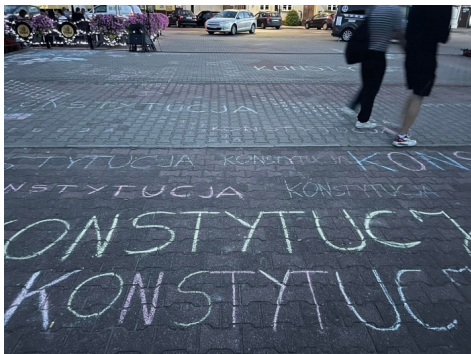 KONST
TYTUCJA
KONSTY
STYTUCJA KONSTYTUCJA KONS
NSTYTUCJA KONSTYTUCJA
KONSTYTUCJ
KONSTYTUC